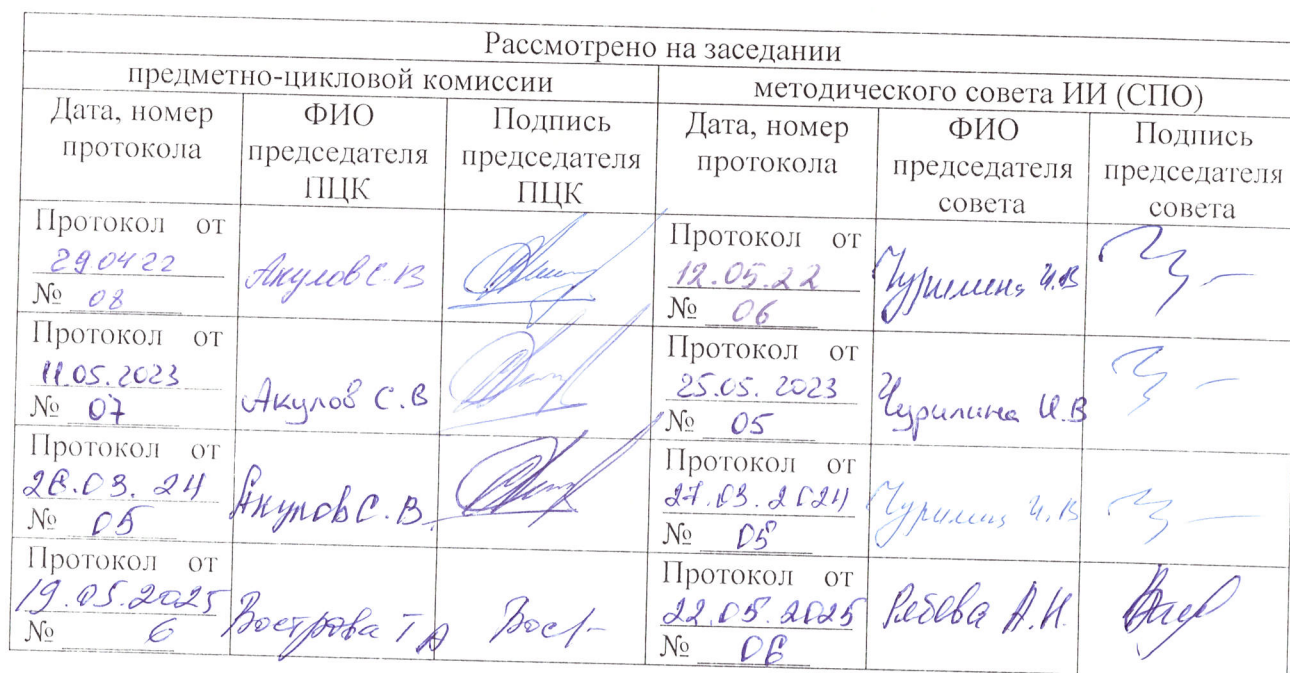 Рассмотрено на заседании
предметно-цикловой комиссии
методического совета ИИ (СПО)
Дата, номер
протокола
ФИО
председателя
ПЦК
Подпись
председателя
ПЦК
Дата, номер
протокола
ФИО
председателя
совета
Подпись
председателя
совета
Протокол от
29.04.22
№ 08
Акулов С.В
Протокол от
12.05.22
№ 06
Чурилина И.В
Протокол от
11.05.2023
№ 07
Акулов С.В
Протокол от
25.05.2023
№ 05
Чурилина И.В
Протокол от
26.03.24
№ 05
Акулов С.В.
Протокол от
27.03.2024
№ 05
Чурилина И.В
Протокол от
19.05.2025
№ 6
Вострова Т А
Протокол от
22.05.2025
№ 06
А.Н.